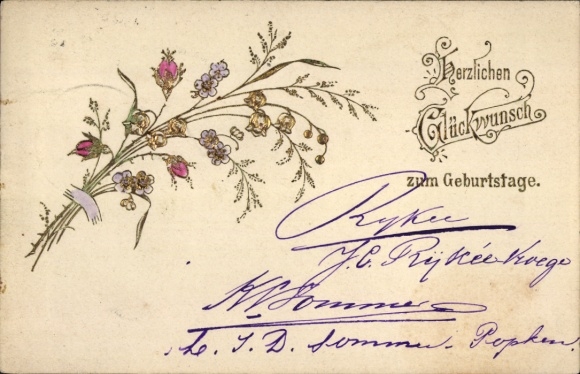 Herzlichen
Glückwunsch
zum Geburtstage.
Rykee
J. C. Rykée-Koege
Sommer
D. Sommer-Popken.